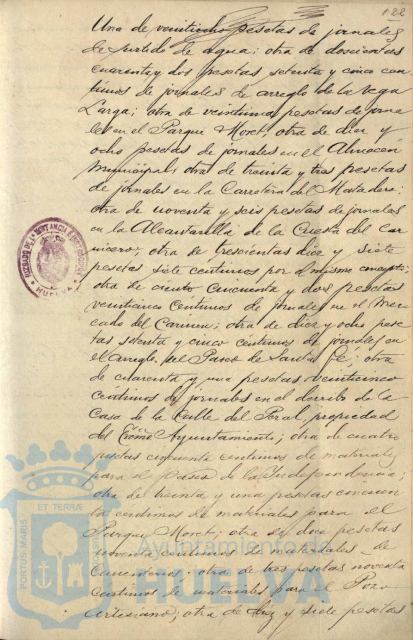 122
Una de veintiocho pesetas de jornales
de surtido de agua; otra de doscientas
cuarenta y dos pesetas setenta y cinco cen
timos de jornales de arreglo de la Vega
Larga; otra de veintiuna pesetas de jorna
les en el Parque Moret; otra de diez y
ocho pesetas de jornales en el Almacen
Municipal; otra de treinta y tres pesetas
de jornales en la Carretera del Matadero;
otra de noventa y seis pesetas de jornales
en la Alcantarilla de la Cuesta del Car
nicero; otra de trescientas diez y siete
pesetas siete centimos por el mismo concepto;
otra de ciento cincuenta y dos pesetas
veinticinco centimos de jornales en el Mer
cado del Carmen; otra de diez y ocho pese
tas setenta y cinco centimos de jornales en
el arreglo del Paseo de Santa Fe; otra
de cuarenta y una pesetas veinticinco
centimos de jornales en el derribo de la
Casa de la Calle del Peral, propiedad
del Excmo Ayuntamiento; otra de cuatro
pesetas cincuenta centimos de materiales
para el Paseo de la Independencia;
otra de treinta y una pesetas cincuen
ta centimos de materiales para el
Parque Moret; otra de dos pesetas
noventa centimos de materiales de
Cementerios; otra de tres pesetas noventa
centimos de materiales para el Pozo
Artesiano; otra de diez y siete pesetas
JUZGADO DE 1ª INSTANCIA E INSTRUCCION
HUELVA
PORTUS MARIS ET TERRÆ
Ayuntamiento de
HUELVA